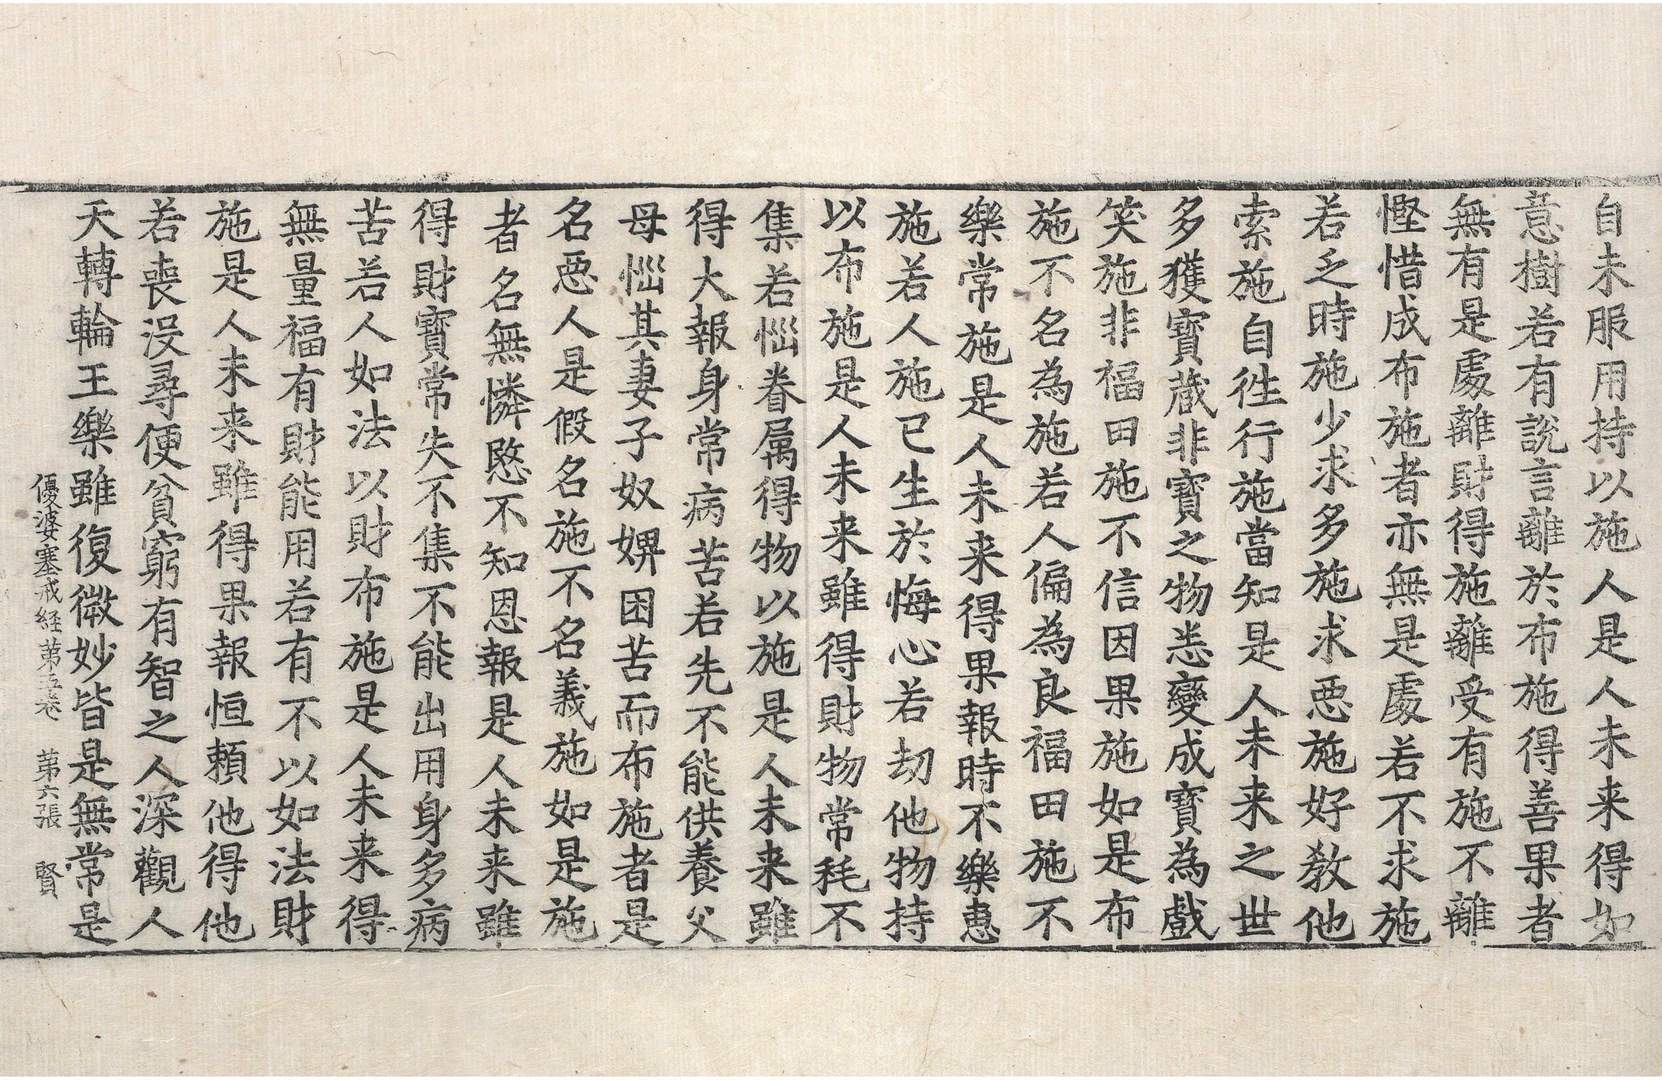 自未服用持以施人是人未来得如
意樹若有說言離於布施得善果者
無有是處離財得施離受有施不離
慳惜成布施者亦無是處若不求施
若乏時施少求多施求惡施好教他
索施自往行施當知是人未来之世
多獲寶藏非寶之物悉變成寶為戲
笑施非福田施不信因果施如是布
施不名為施若人偏為良福田施不
樂常施是人未来得果報時不樂惠
施若人施已生於悔心若劫他物持
以布施是人未来雖得財物常耗不
集若惱眷属得物以施是人未来雖
得大報身常病苦若先不能供養父
母惱其妻子奴婢困苦而布施者是
名惡人是假名施不名義施如是施
者名無憐愍不知恩報是人未来雖
得財寶常失不集不能出用身多病
苦若人如法以財布施是人未来得
無量福有財能用若有不以如法財
施是人未来雖得果報恒頼他得他
若喪没尋便貧窮有智之人深觀人
天轉輪王樂雖復微妙皆是無常是
優婆塞戒経第五卷 第六張 賢